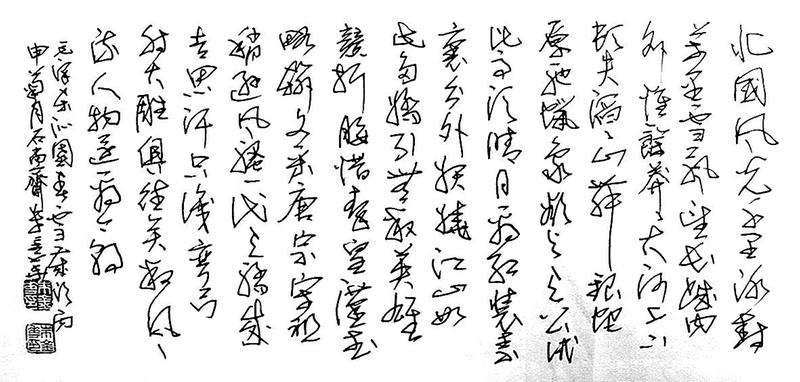 北國風光千里冰封
萬里雪飄望長城內
外惟餘莽〻大河上下
頓失滔〻山舞銀蛇
原馳蠟象欲與天公試
比高須晴日看紅裝素
裹分外妖嬈江山如
此多嬌引無數英雄
競折腰惜秦皇漢武
略輸文采唐宗宋祖
稍遜風騷一代天驕成
吉思汗只識彎弓
射大雕俱往矣數風
流人物還看今朝
毛澤東沁園春雪歲次丙
申菊月石尚齋